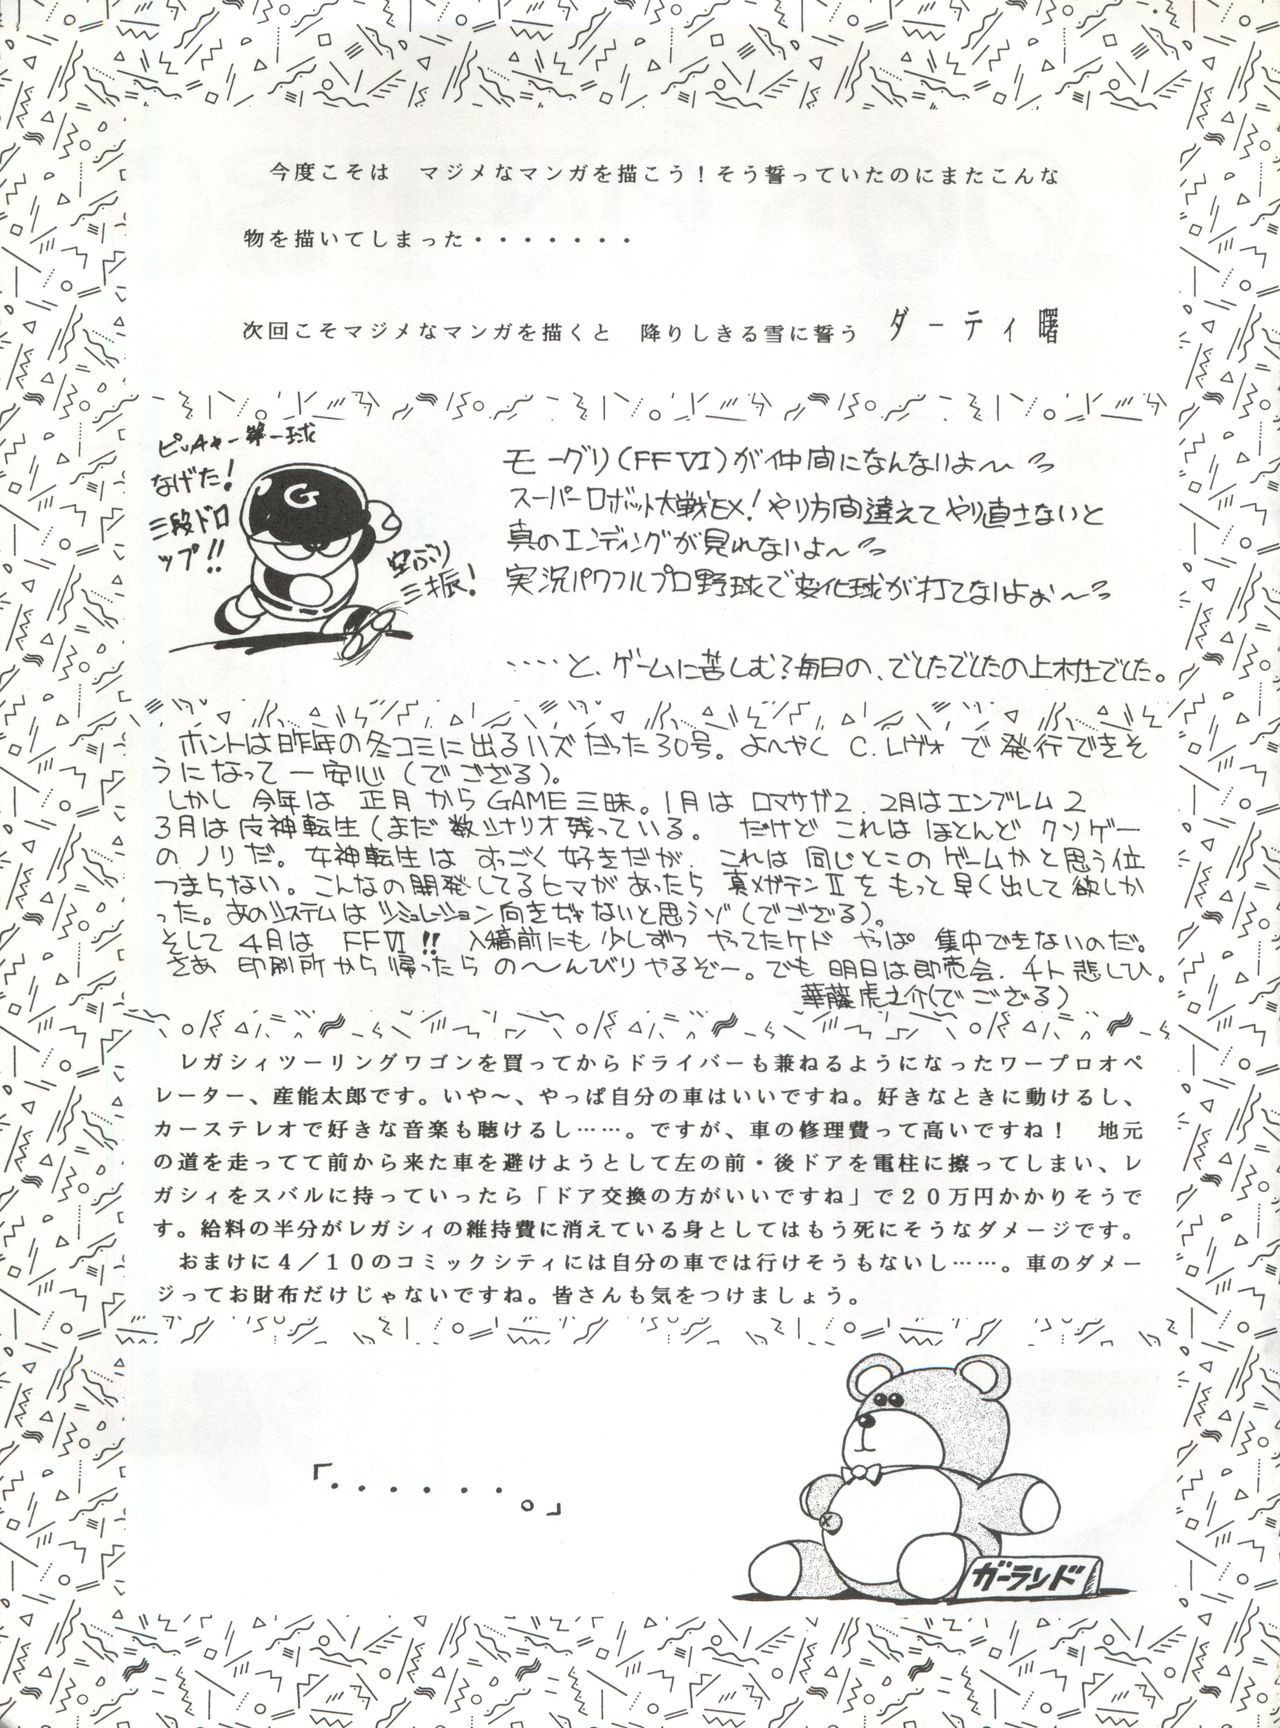 今度こそは　マジメなマンガを描こう！そう誓っていたのにまたこんな
物を描いてしまった・・・・・・・
次回こそマジメなマンガを描くと　降りしきる雪に誓う　ダーティ曙
ピッチャー第一球
なげた！
三段ドロ
ップ！！
空ぶり
三振！
モーグリ（FFⅥ）が仲間になんないよ〜
スーパーロボット大戦EX！やり方間違えてやり直さないと
真のエンディングが見れないよ〜
実況パワフルプロ野球で変化球が打てないよぉ〜
‥‥と、ゲームに苦しむ？毎日の、でしたでしたの上村仕でした。
ホントは昨年の冬コミに出るハズだった30号。よ〜やく C.レヴォ で発行できそ
うになって一安心（でござる）。
しかし 今年は 正月からGAME三昧。1月は ロマサガ2、2月はエンブレム2
3月は女神転生（まだ数シナリオ残っている。 だけど これは ほとんど クソゲー
のノリだ。女神転生は すっごく好きだが、これは 同じとこのゲームかと思う位
つまらない。こんなの開発してるヒマがあったら 真メガテンⅡを もっと早く出して欲しか
った。あのシステムはシミュレーション向きぢゃないと思うゾ（でござる）。
そして 4月は FFⅥ!! 入稿前にも少しずつ やってたケド やっぱ 集中できないのだ。
さあ 印刷所から帰ったら の〜んびりやるぞー。でも 明日は即売会、チト悲しひ。
華藤虎之介（でござる）
レガシィツーリングワゴンを買ってからドライバーも兼ねるようになったワープロオペ
レーター、産能太郎です。いや〜、やっぱ自分の車はいいですね。好きなときに動けるし、
カーステレオで好きな音楽も聴けるし……。ですが、車の修理費って高いですね！　地元
の道を走ってて前から来た車を避けようとして左の前・後ドアを電柱に擦ってしまい、レ
ガシィをスバルに持っていったら「ドア交換の方がいいですね」で２０万円かかりそうで
す。給料の半分がレガシィの維持費に消えている身としてはもう死にそうなダメージです。
おまけに４／１０のコミックシティには自分の車では行けそうもないし……。車のダメー
ジってお財布だけじゃないですね。皆さんも気をつけましょう。
「・・・・・・・。」
ガーランド